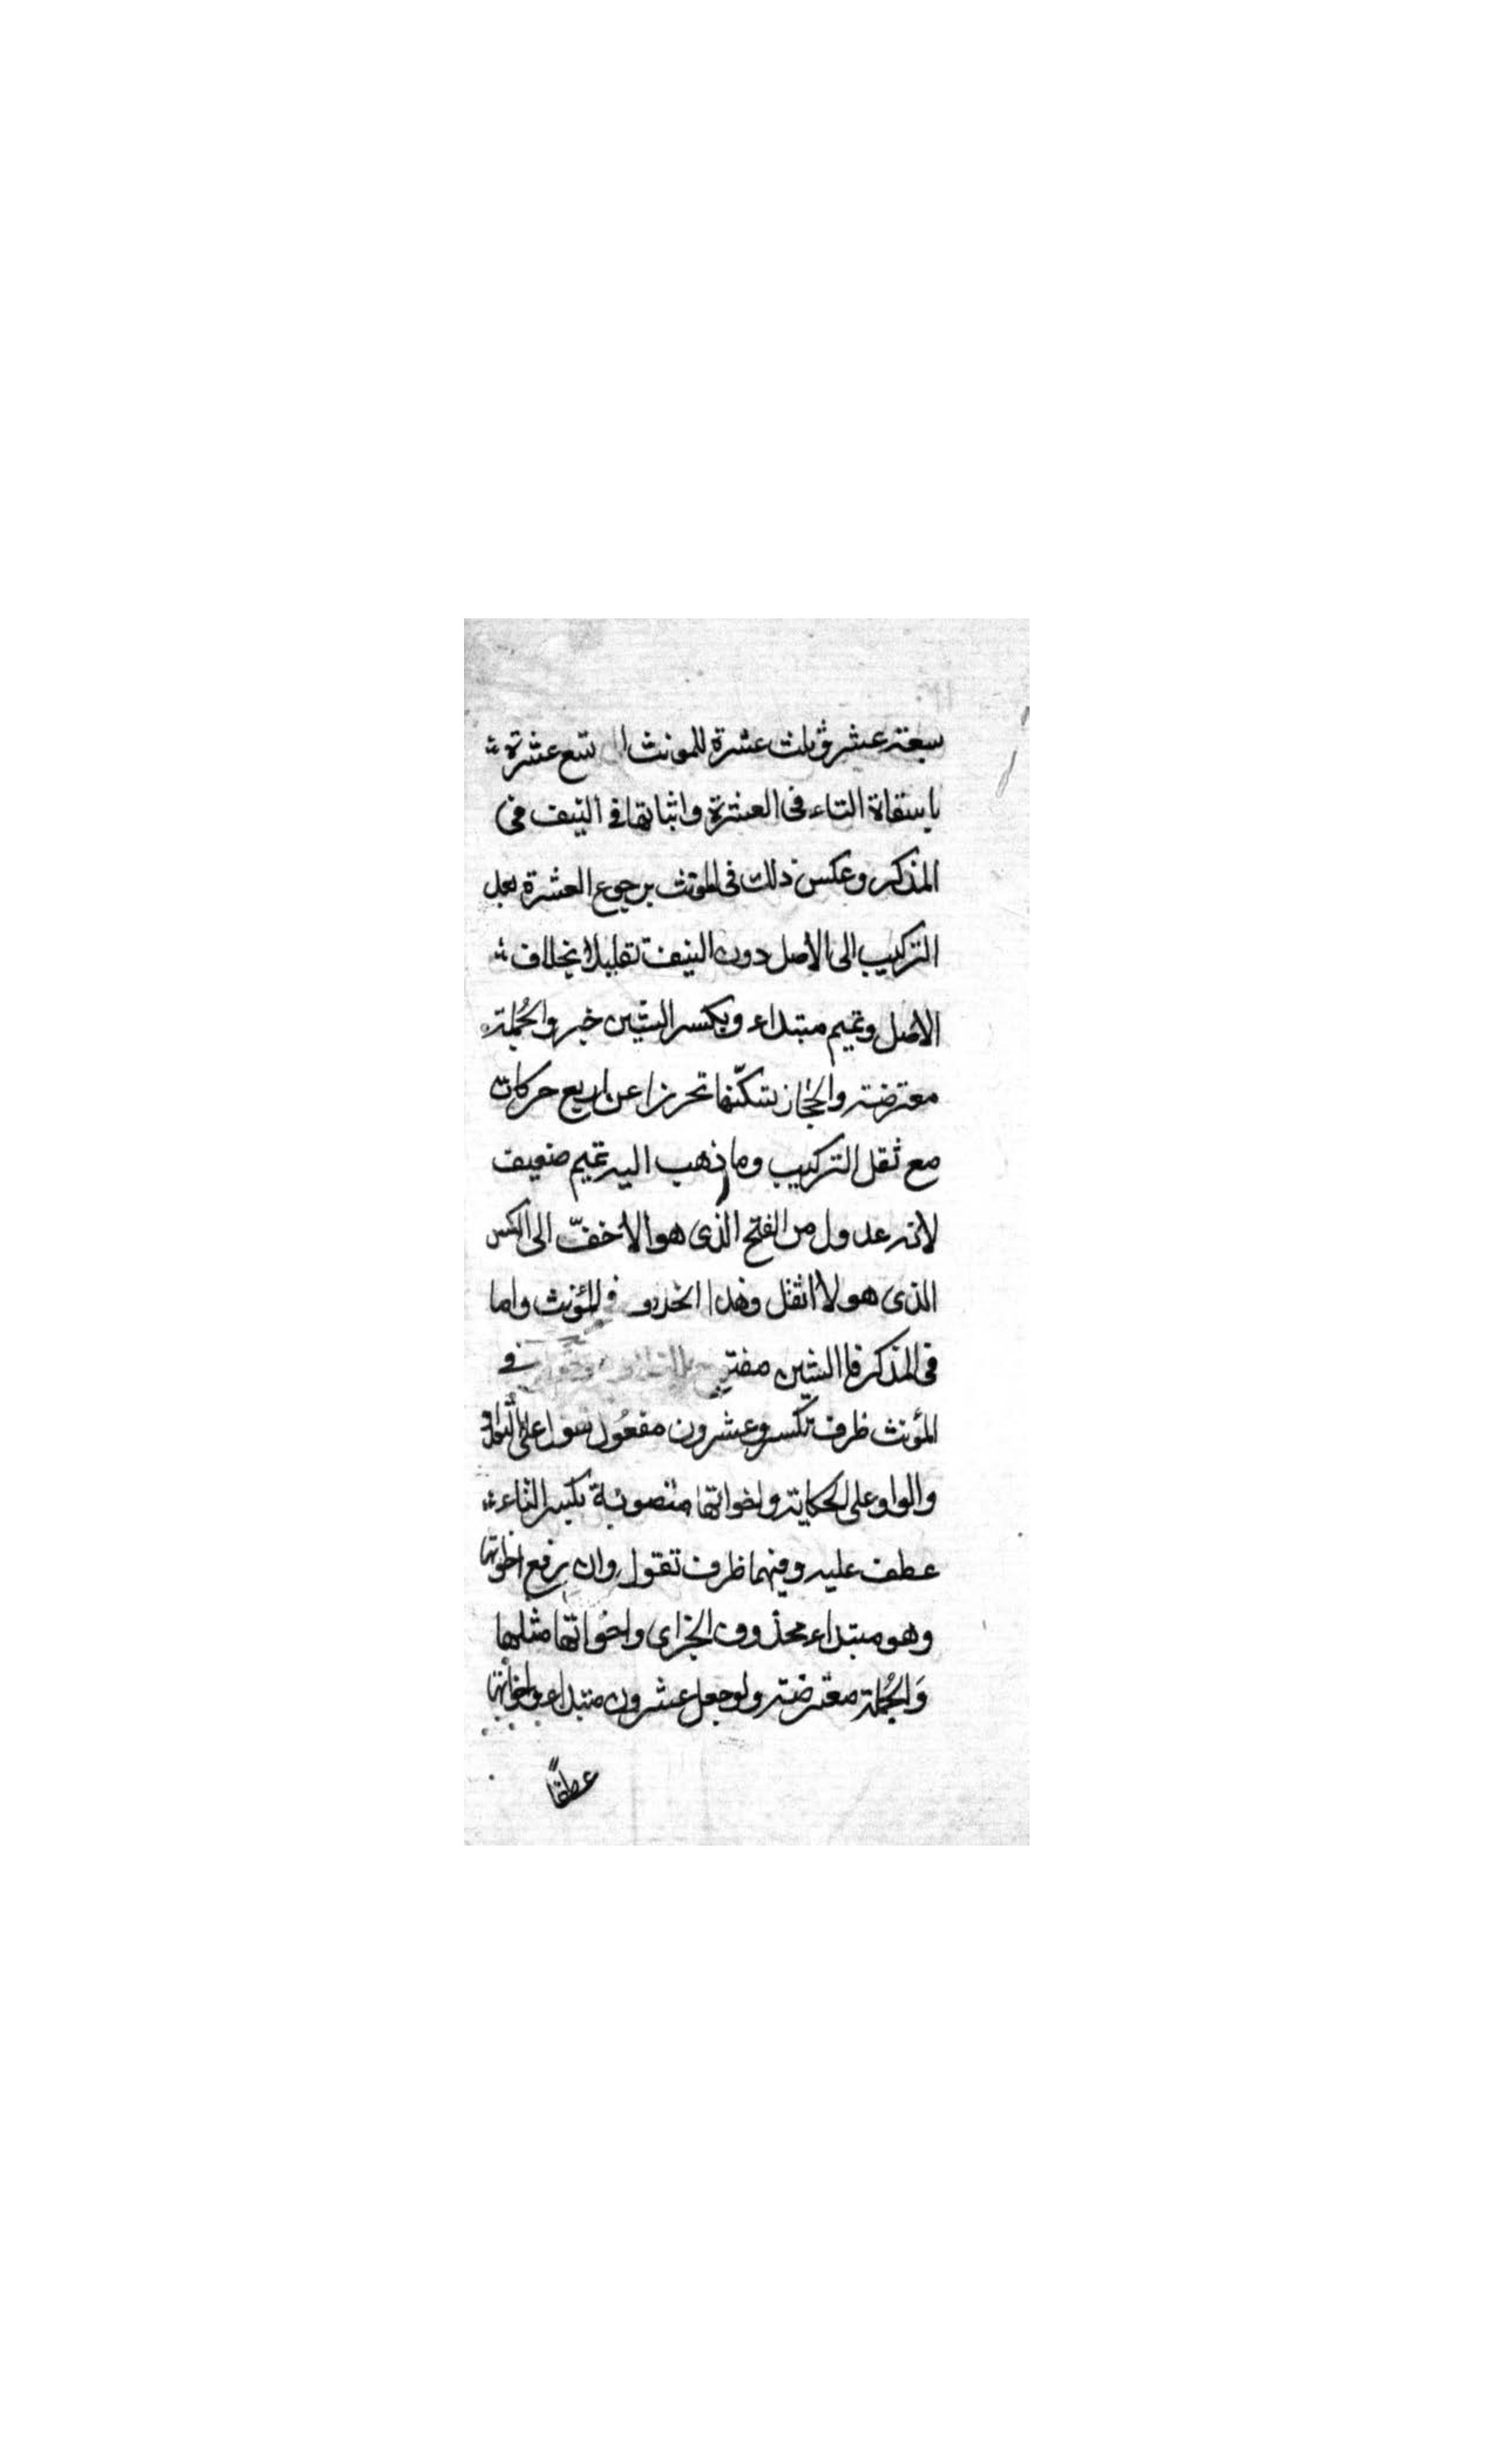 سبعة عشر وثلث عشرة للمونث ال تسع عشرة
باسقاة التاء فى العشرة واثباتها فى النيف فى
المذكر وعكس ذلك فى المونث برجوع العشرة بعد
التركيب الى الاصل دون النيف تقليلا بخلاف
الاصل وتميم مبتداء ويكسر الشين خبر والجُملة
معترضة والحجاز يسكّنها تحرزا عن اربع حركات
مع ثقل التركيب وما ذهب اليه تميم ضعيف
لانه عدول من الفتح الذى هو الاخفّ الى الكسر
الذى هو لااثقل وهذا فى المؤنث واما
فى المذكر فاالشين فى
المؤنث ظرف تكسر وعشرون مفعُول تقول على
والواو على الحكاية واخواتها منصوبة بكسر التاء
عطف عليه وفيهما ظرف تقول وان برفع اخواتها
وهو مبتداء محذوف الخبر اى واخُواتها مثلها
وَالجُملة معترضة ولو جعل عشرون مبتداء واخواتها
عطفًا